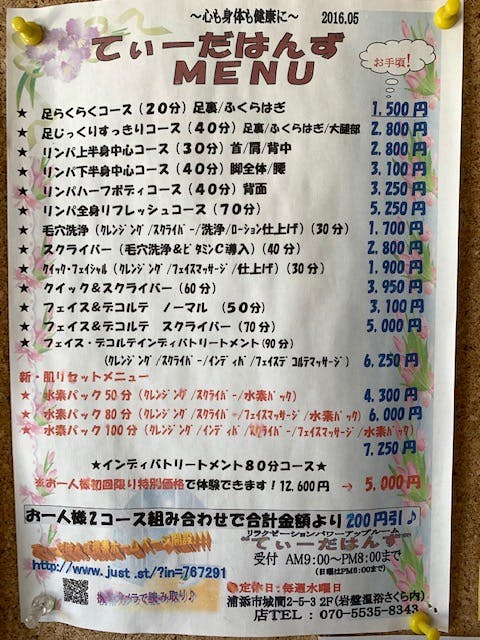 ～心も身体も健康に～ 2016.05
てぃーだはんず
MENU
お手頃!
★ 足らくらくコース（20分）足裏/ふくらはぎ 1,500円
★ 足じっくりすっきりコース（40分）足裏/ふくらはぎ/大腿部 2,800円
★ リンパ上半身中心コース（30分）首/肩/背中 2,800円
★ リンパ下半身中心コース（40分）脚全体/腰 3,100円
★ リンパハーフボディコース（40分）背面 3,250円
★ リンパ全身リフレッシュコース（70分） 5,250円
★ 毛穴洗浄（ｸﾚﾝｼﾞﾝｸﾞ/ｽｸﾗｲﾊﾞｰ/洗浄/ﾛｰｼｮﾝ仕上げ）（30分） 1,700円
★ スクライバー（毛穴洗浄&ﾋﾞﾀﾐﾝC導入）（40分） 2,800円
★ ｸｲｯｸ・ﾌｪｲｼｬﾙ（ｸﾚﾝｼﾞﾝｸﾞ/ﾌｪｲｽﾏｯｻｰｼﾞ/仕上げ）（30分） 1,900円
★ クイック&スクライバー（60分） 3,950円
★ フェイス&デコルテ ノーマル （50分） 3,100円
★ フェイス&デコルテ スクライバー（70分） 5,000円
★ フェイス・デコルテインディバトリートメント（90分）
（ｸﾚﾝｼﾞﾝｸﾞ/ｽｸﾗｲﾊﾞｰ/ｲﾝﾃﾞｨﾊﾞ/ﾌｪｲｽﾃﾞｺﾙﾃﾏｯｻｰｼﾞ） 6,250円
新・肌リセットメニュー
★ 水素パック50分（ｸﾚﾝｼﾞﾝｸﾞ/ｽｸﾗｲﾊﾞｰ/水素ﾊﾟｯｸ） 4,300円
★ 水素パック80分（ｸﾚﾝｼﾞﾝｸﾞ/ｽｸﾗｲﾊﾞｰ/ﾌｪｲｽﾏｯｻｰｼﾞ/水素ﾊﾟｯｸ） 6,000円
★ 水素パック100分（ｸﾚﾝｼﾞﾝｸﾞ/ｲﾝﾃﾞｨﾊﾞ/ｽｸﾗｲﾊﾞｰ/ﾌｪｲｽﾏｯｻｰｼﾞ/水素ﾊﾟｯｸ）
7,250円
★インディバトリートメント80分コース★
※お一人様初回限り特別価格で体験できます！12,600円 → 5,000円
お一人様2コース組み合わせで合計金額より200円引♪
ホームページ開設
http://www.just.st/?in=767291
カメラで読み取り♪
リラクゼーションパワーアップルーム
"てぃーだはんず"
受付 AM9:00～PM8:00まで
（日曜はPM6:00まで）
定休日：毎週水曜日
浦添市城間2-5-3 2F(岩盤温浴さくら内)
店TEL：070-5535-8343